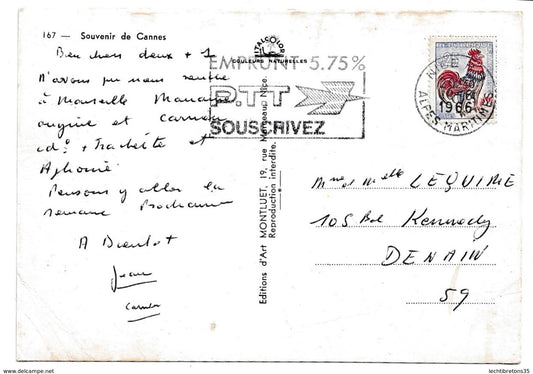 167 — Souvenir de Cannes
Bien chers deux + 1
N'avons pu nous rendre
à Marseille
angine et
+ Trachéite et
Aphonie
Pensons y aller la
semaine Prochaine
A Bientôt
Jean
ITALCOLOR
COULEURS NATURELLES
EMPRUNT 5.75%
PTT
SOUSCRIVEZ
Editions d'Art MONTLUET, 19, rue Marceau, Nice.
Reproduction interdite.
NICE
1966
ALPES MARITIMES
Mme et Melle LEQUIME
105 Bd Kennedy
DENAIN
59
https://www.delcampe.net
lechtibretons35